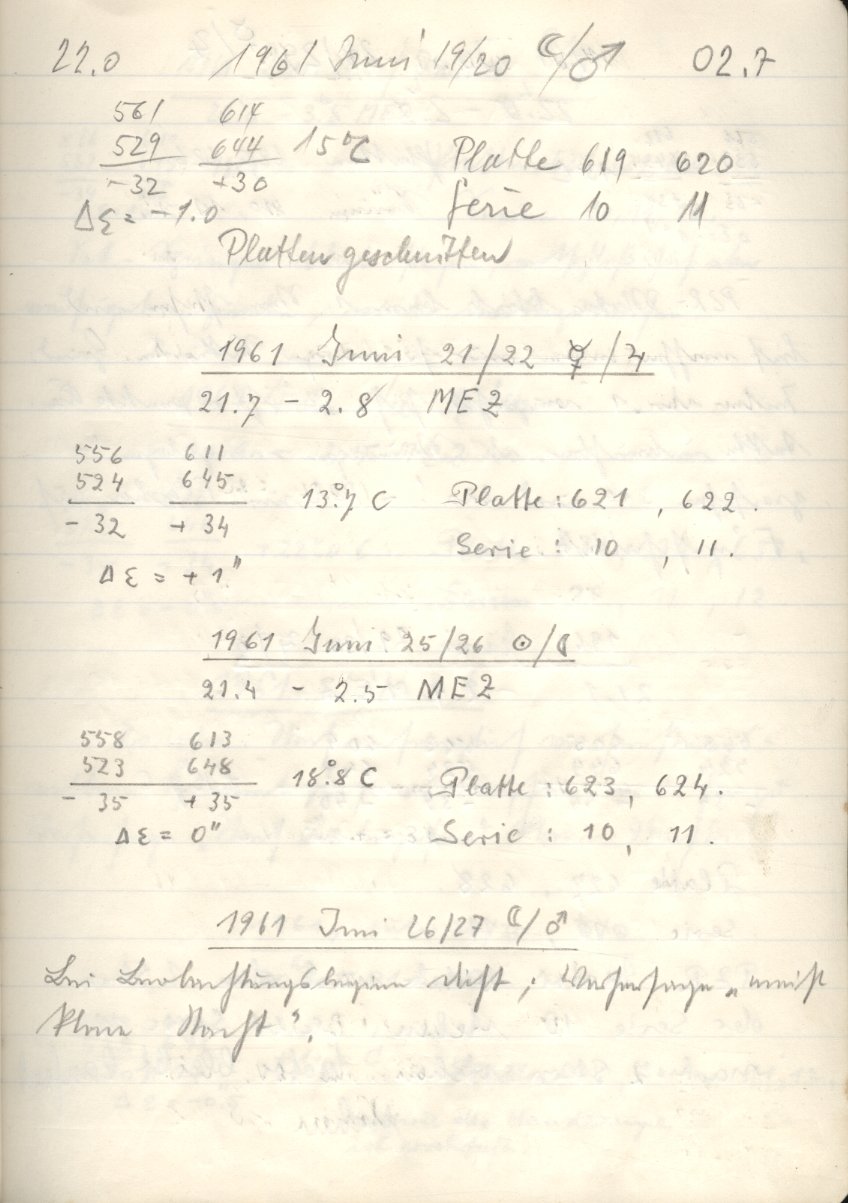 22.0 1961 Juni 19/20 ☾/♂ 02.7
561 614
529 644 15°C Platte 619 620
-32 +30 Serie 10 11
Δε = -1.0
Platten geschnitten
1961 Juni 21/22 ☿/♃
21.7 - 2.8 MEZ
556 611
524 645 13.°7 C Platte : 621 , 622 .
- 32 + 34 Serie : 10 , 11 .
Δε = + 1"
1961 Juni 25/26 ☉/☾
21.4 - 2.5 MEZ
558 613
523 648 18.°8 C Platte : 623 , 624 .
- 35 + 35 Serie : 10 , 11 .
Δε = 0"
1961 Juni 26/27 ☾/♂
Bei Beobachtungsbeginn dicht, Vorhersage „meist
klare Nacht".